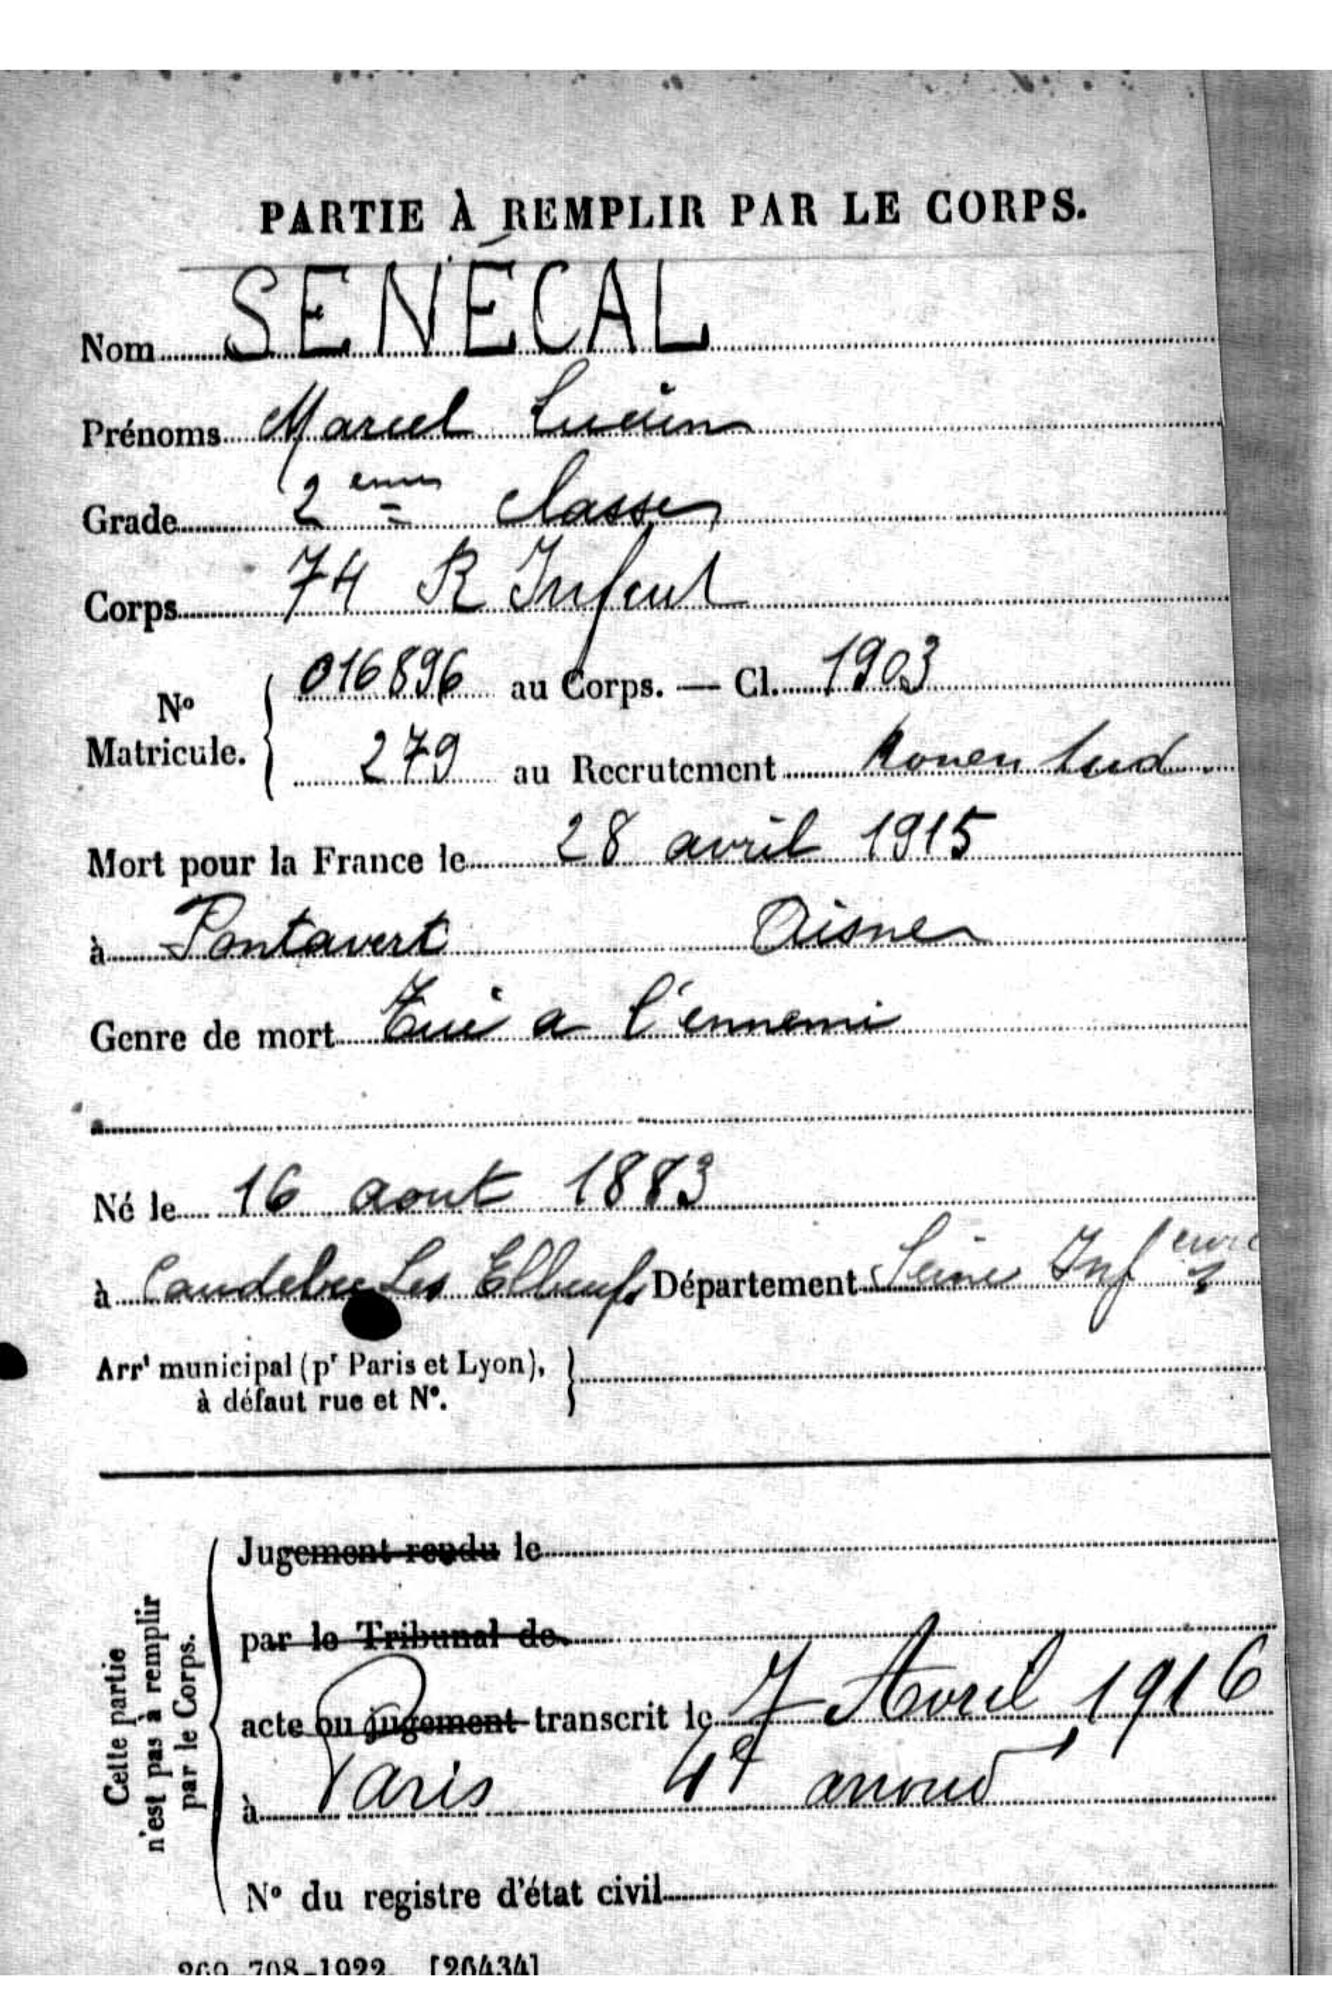 PARTIE À REMPLIR PAR LE CORPS.
Nom SENÉCAL
Prénoms Marcel Lucien
Grade 2 eme classe
Corps 74 R Infant
No Matricule. 016896 au Corps. — Cl. 1903
279 au Recrutement Rouen Sud
Mort pour la France le 28 avril 1915
à Pontavert Aisne
Genre de mort Tué a l'ennemi
Né le 16 aout 1883
à Caudebec Les Elbeuf Département Seine Infeure
Arrt municipal (pr Paris et Lyon),
à défaut rue et No.
Cette partie
n'est pas à remplir
par le Corps.
Jugement rendu le
par le Tribunal de
acte ou jugement transcrit le 7 Avril 1916
à Paris 4e arrond
No du registre d'état civil
269-708-1922. [26434]